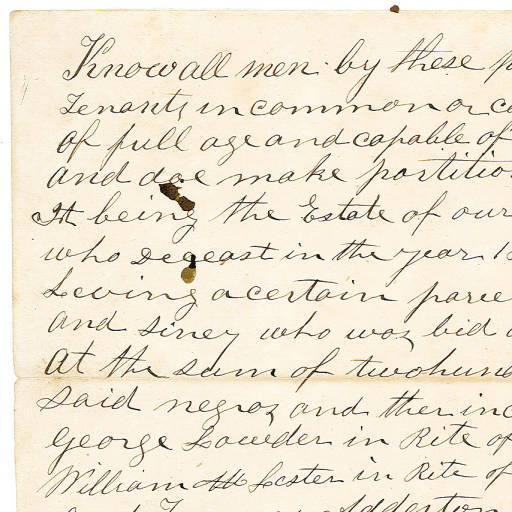 Know all men by these
Tenants in common or
of full age and capable of
and doe make partitio
It being the Estate of our
who deceast in the year 18
Leving a certain parce
and Siney who was bid
at the sum of twohund
said negros and ther inc
George Lowder in Rite of
William M Lester in Rite of
Adderton